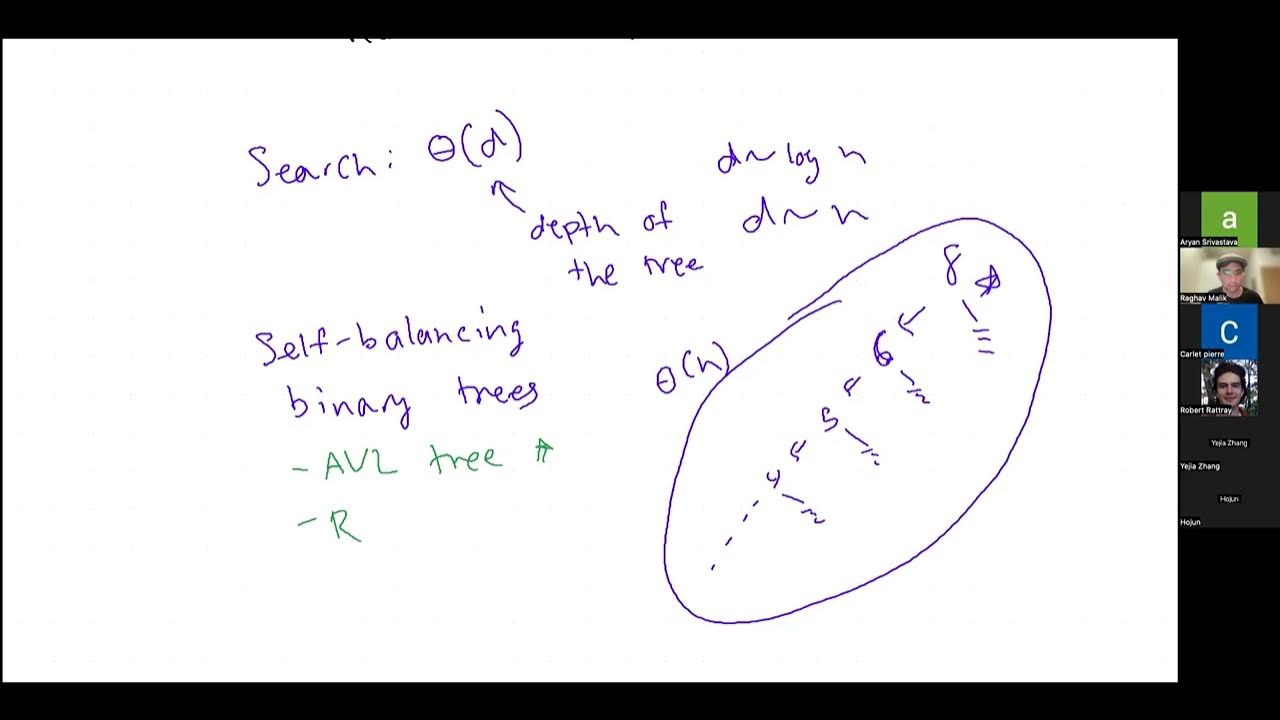 Search: Θ(d)
d~ log n
d~ n
depth of
the tree
Self-balancing
binary trees
- AVL tree
- R
Θ(n)
8
6
5
4
a
Aryan Srivastava
Raghav Malik
C
Carlet pierre
Robert Rattray
Yejia Zhang
Yejia Zhang
Hojun
Hojun